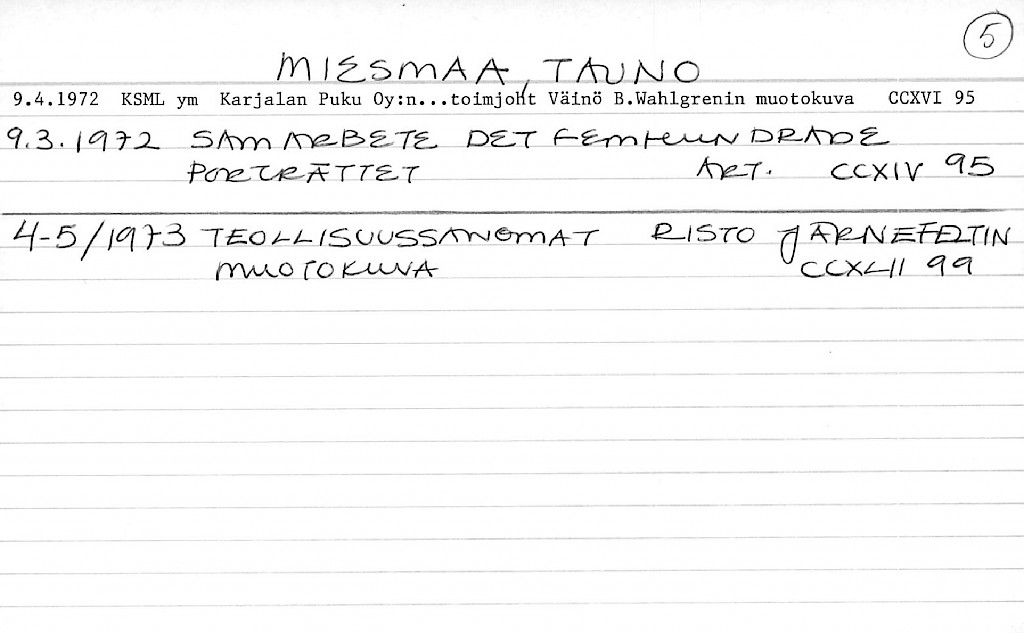 5
MIESMAA, TAUNO
9.4.1972 KSML ym Karjalan Puku Oy:n...toimjoht Väinö B.Wahlgrenin muotokuva CCXVI 95
9.3.1972 SAMARBETE DET FEMHUNDRADE
PORTRÄTTET ART. CCXIV 95
4-5/1973 TEOLLISUUSSANOMAT RISTO JÄRNEFELTIN
MUOTOKUVA CCXLII 99